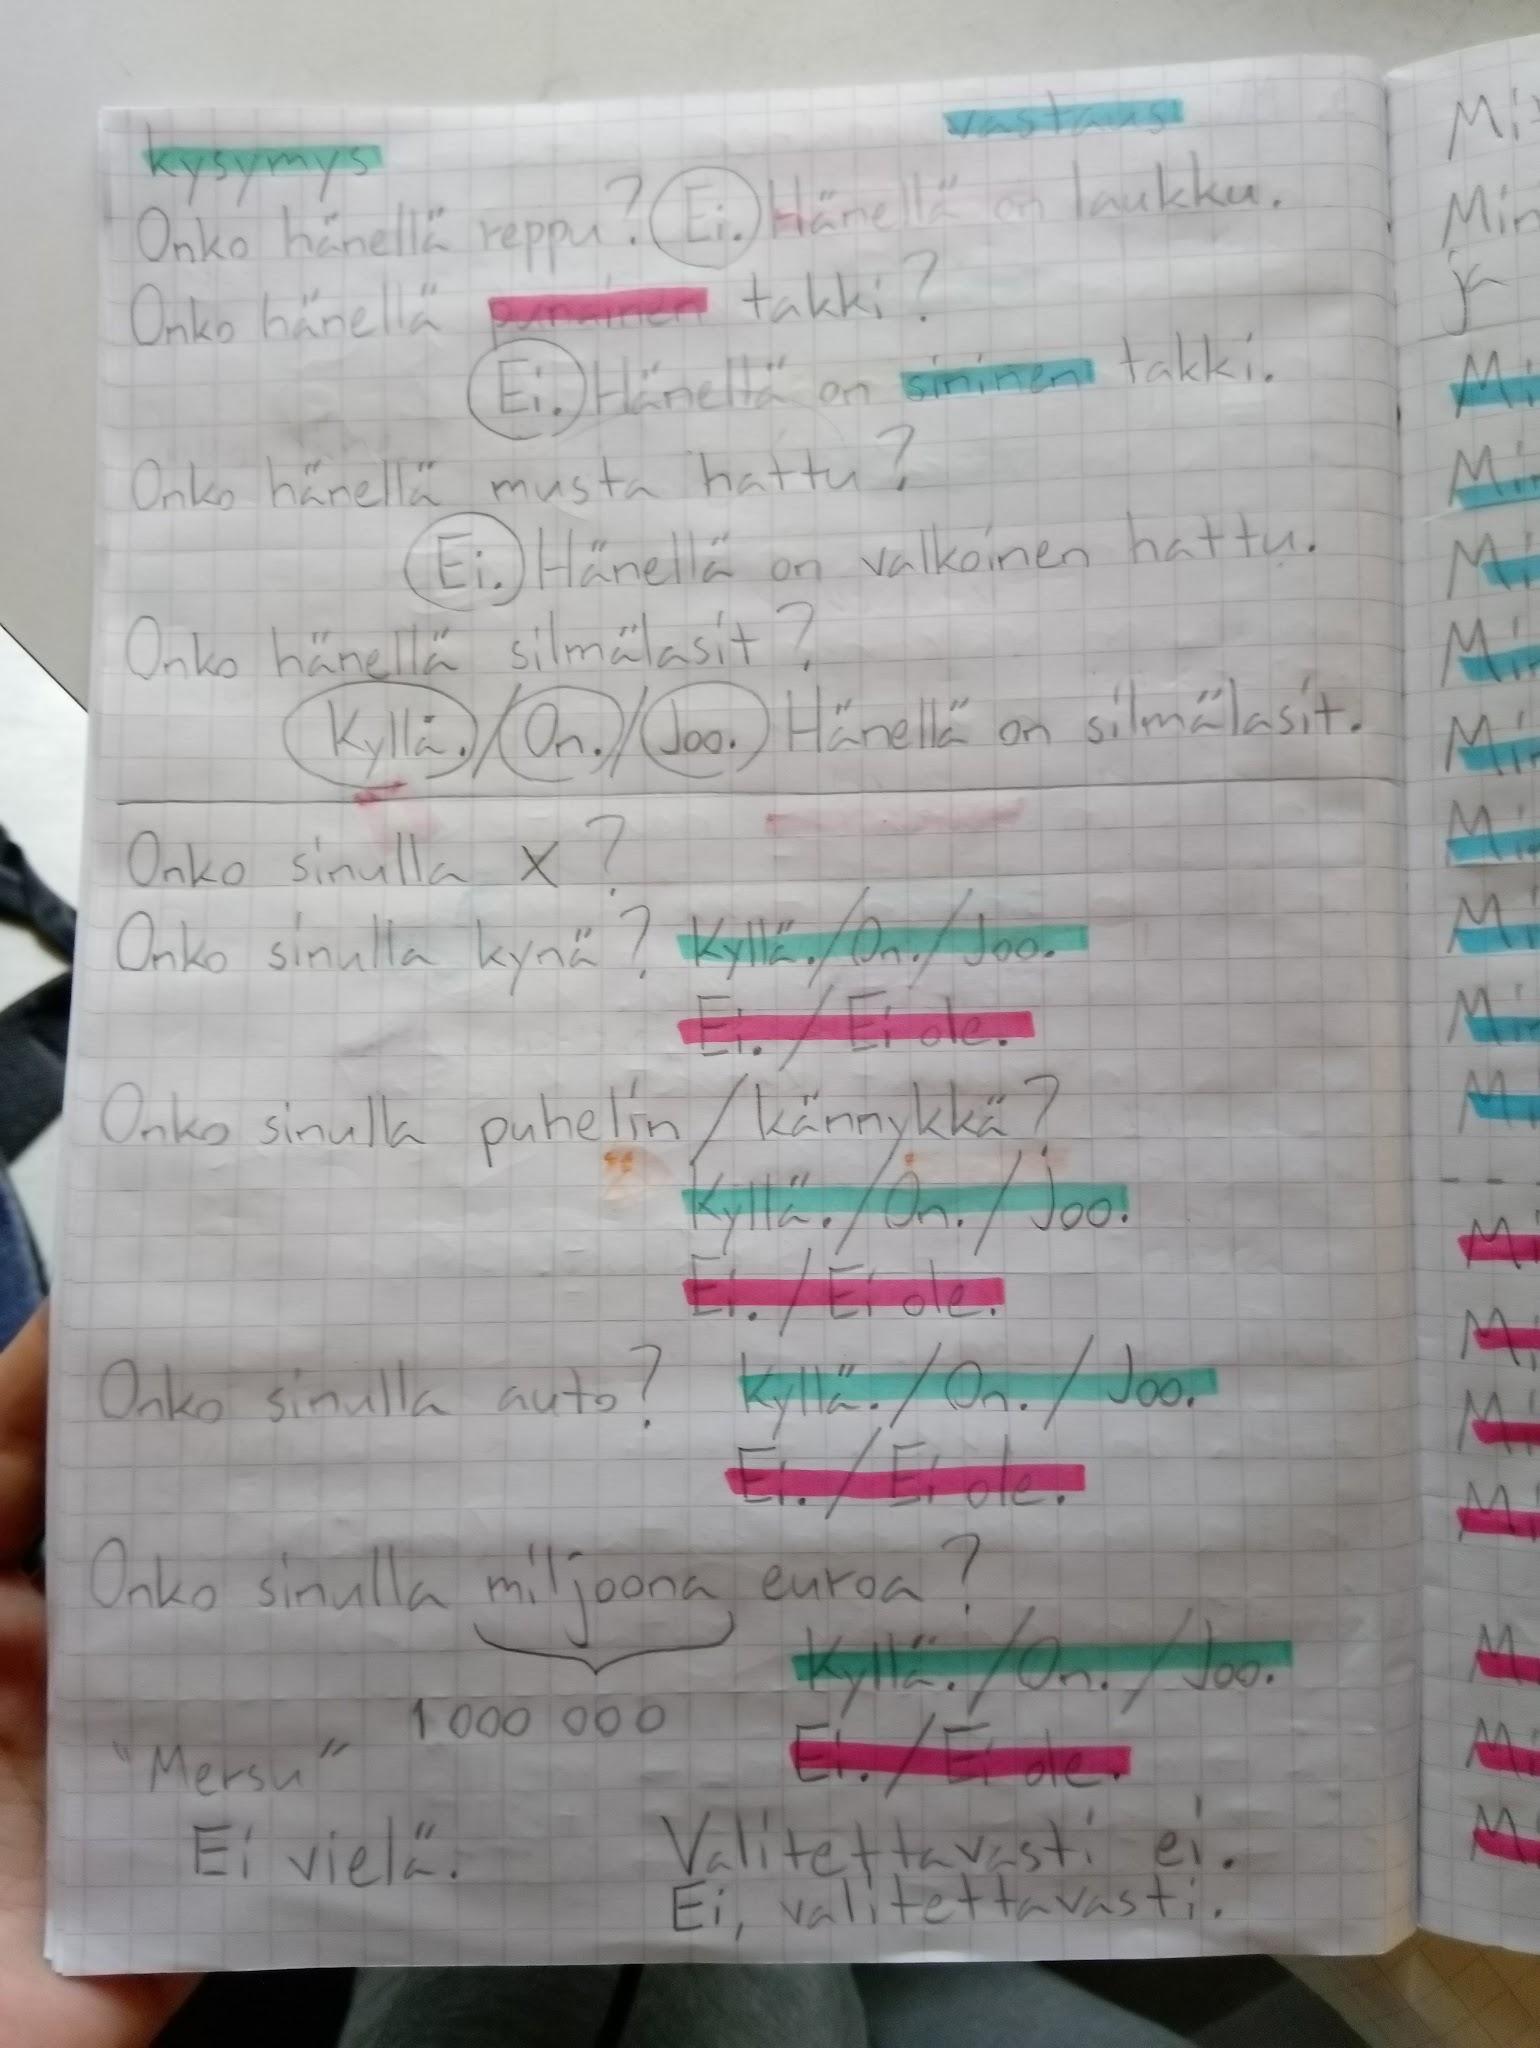 kysymys vastaus
Onko hänellä reppu? Ei. Hänellä on laukku.
Onko hänellä punainen takki?
Ei. Hänellä on sininen takki.
Onko hänellä musta hattu?
Ei. Hänellä on valkoinen hattu.
Onko hänellä silmälasit?
Kyllä./On./Joo. Hänellä on silmälasit.
Onko sinulla x?
Onko sinulla kynä? Kyllä./On./Joo.
Ei./Ei ole.
Onko sinulla puhelin/kännykkä?
Kyllä./On./Joo.
Ei./Ei ole.
Onko sinulla auto? Kyllä./On./Joo.
Ei./Ei ole.
Onko sinulla miljoona euroa?
Kyllä./On./Joo.
1 000 000
Ei./Ei ole.
"Mersu"
Ei vielä. Valitettavasti ei.
Ei, valitettavasti.
ja